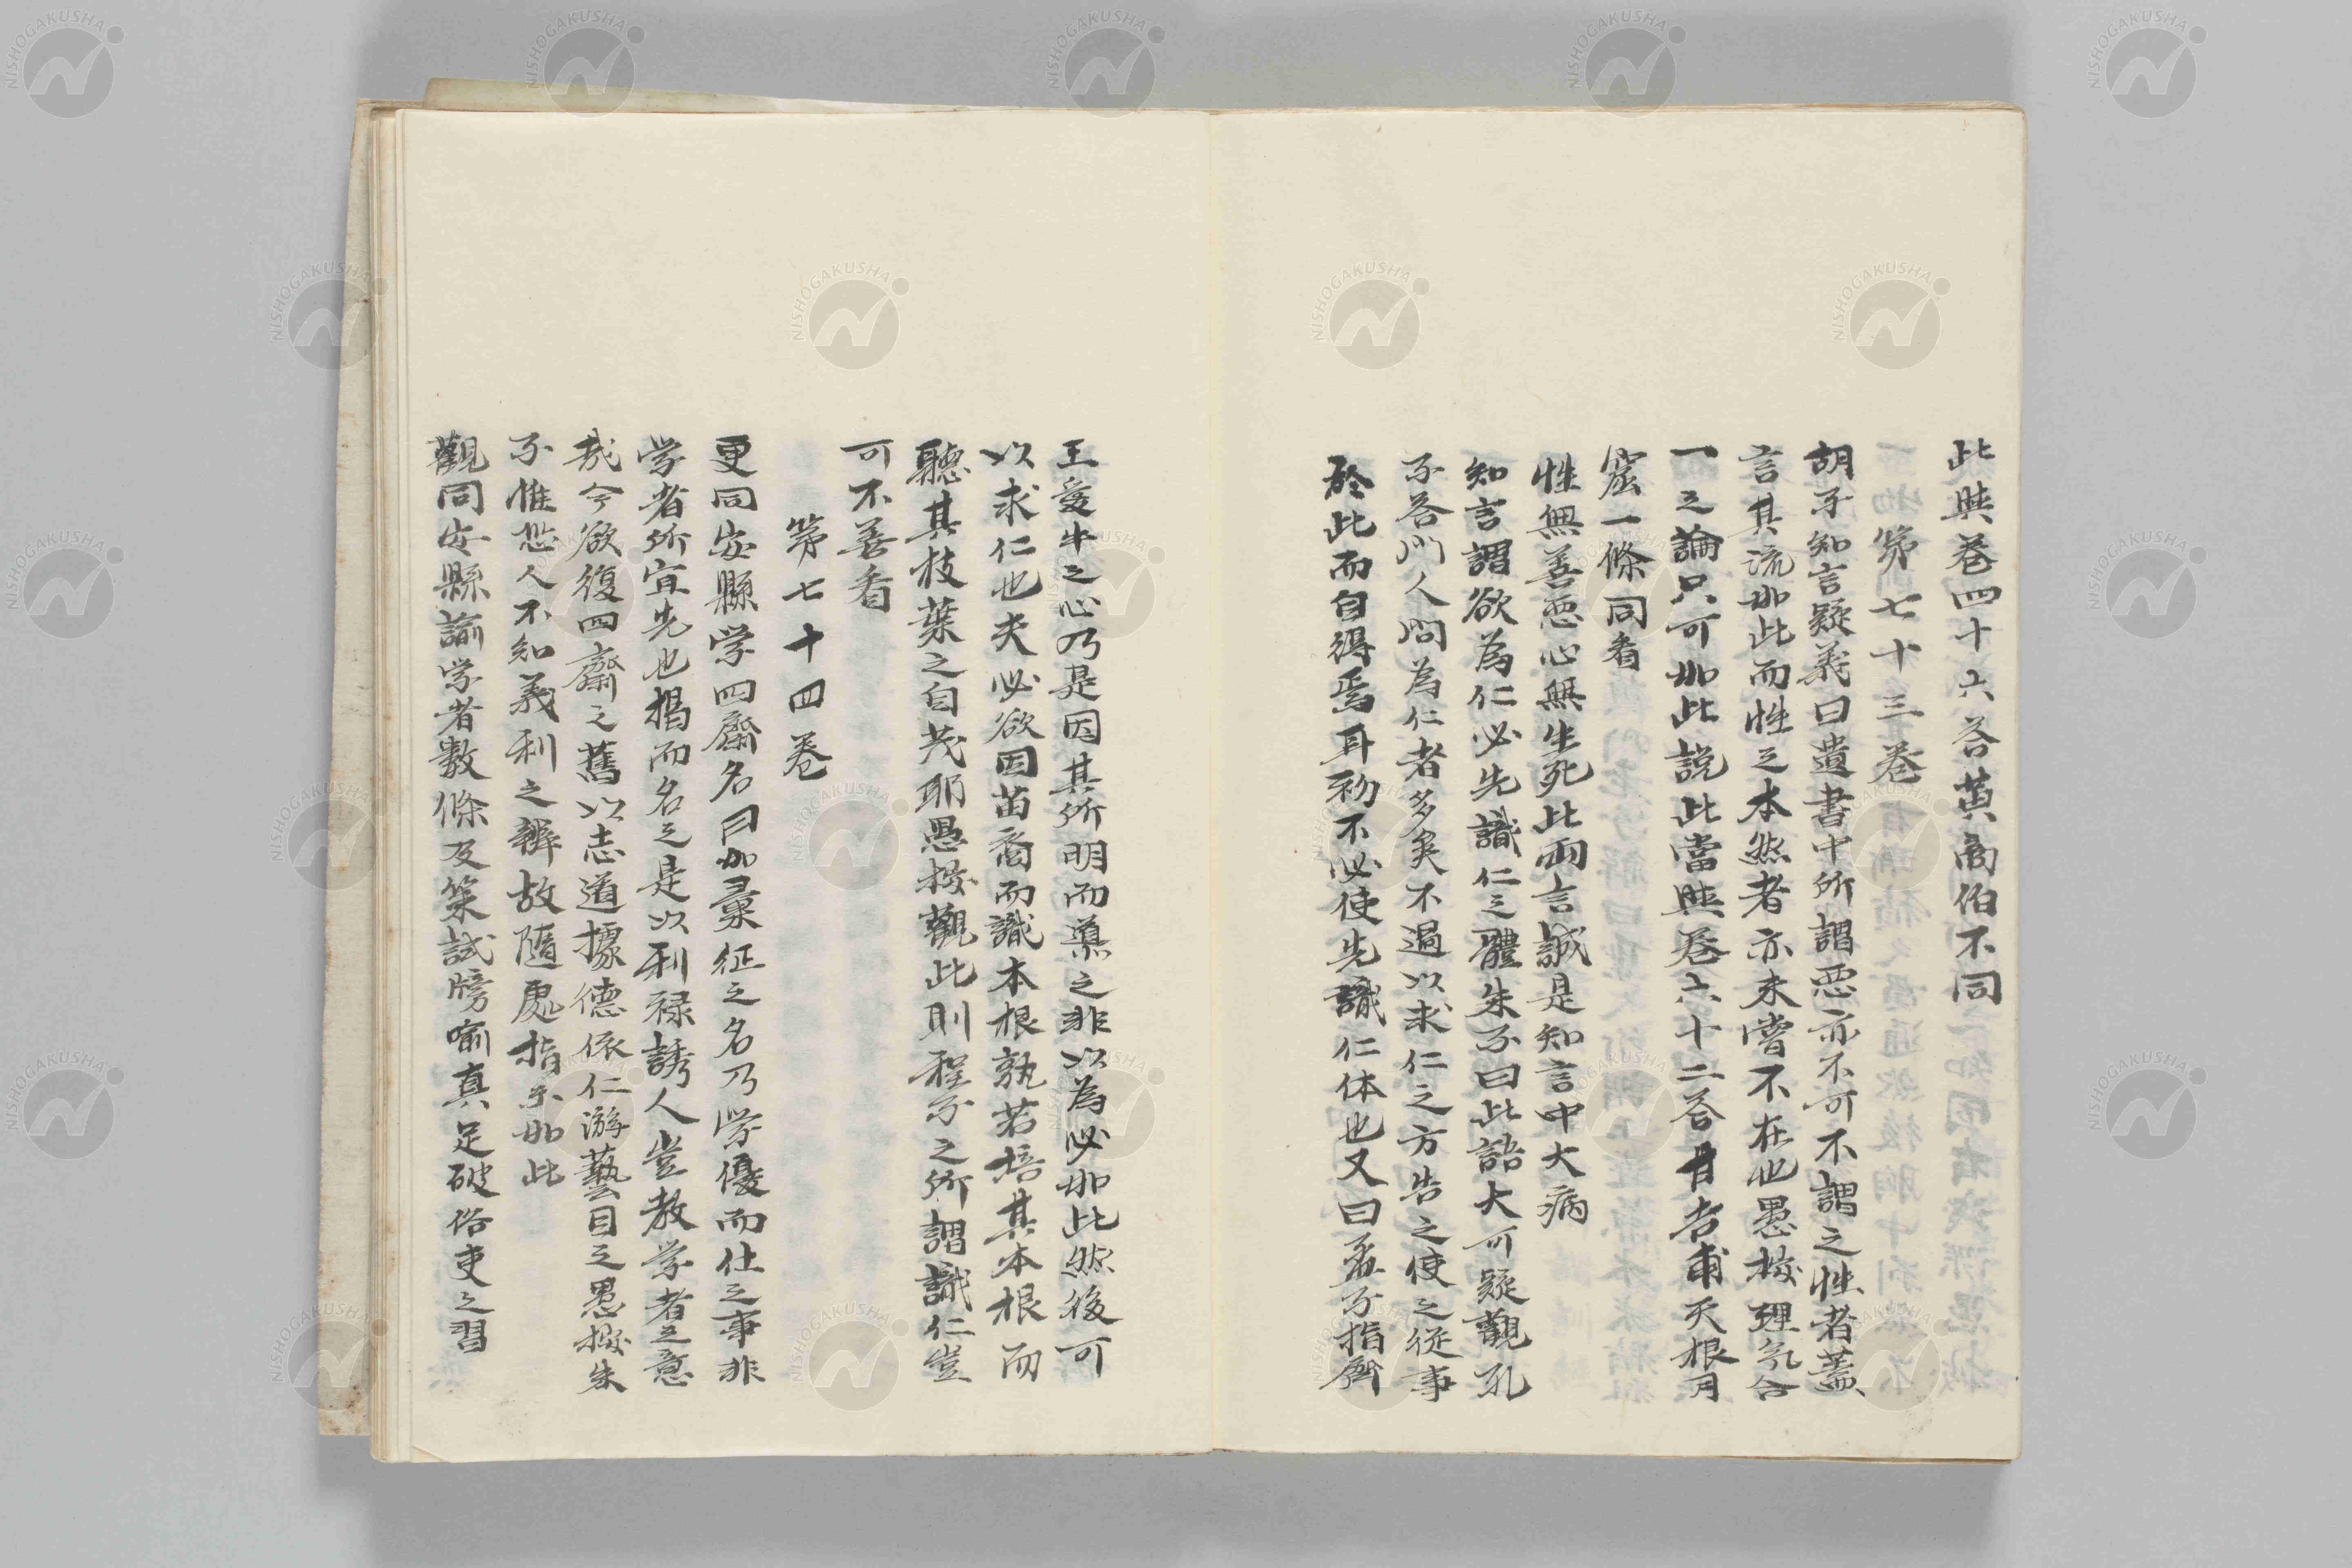 此與卷四十六答黄商伯不同
第七十三卷
胡子知言疑義曰遺書中所謂悪亦不可不謂之性者蓋
言其流如此而性之本然者亦未嘗不在也愚按理気合
一之論只可如此説此當與卷六十二答甘吉甫天根月
窟一條同看
性無善悪心無生死此両言誠是知言中大病
知言謂欲為仁必先識仁之體朱子曰此語大可疑觀孔
子答門人問為仁者多矣不過以求仁之方告之使之從事
於此而自得焉耳初不必使先識仁体也又曰孟子指齊
王愛牛之心乃是因其所明而導之非以為必如此然後可
以求仁也夫必欲因苗裔而識本根孰若培其本根而
聽其枝葉之自茂耶愚按觀此則程子之所謂識仁豈
可不善看
第七十四卷
更同安縣学四齋名曰如彙征之名乃学優而仕之事非
学者所宜先也揭而名之是以利禄誘人豈教学者之意
哉今欲復四齋之舊以志道據德依仁游藝目之愚按朱
子惟恐人不知義利之辨故隨處指示如此
觀同安縣諭学者數條及策試牓喻真足破俗吏之習
NISHOGAKUSHA